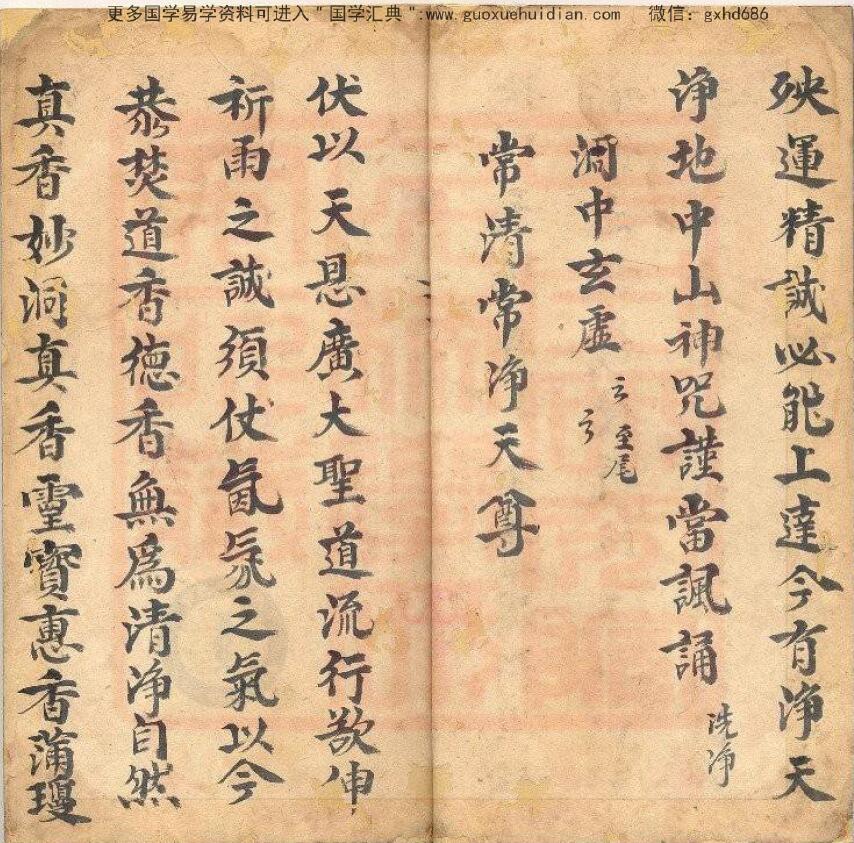 更多国学易学资料可进入"国学汇典":www.guoxuehuidian.com 微信:gxhd686
殃運精誠必能上達今有淨天
淨地中山神咒謹當諷誦 洗净
洞中玄虛 云云 至尾
常清常净天尊
伏以天悬廣大聖道流行欲伸
祈雨之誠須仗氤氛之氣以今
恭焚道香德香無為清净自然
真香妙洞真香靈寶惠香蒲瓊